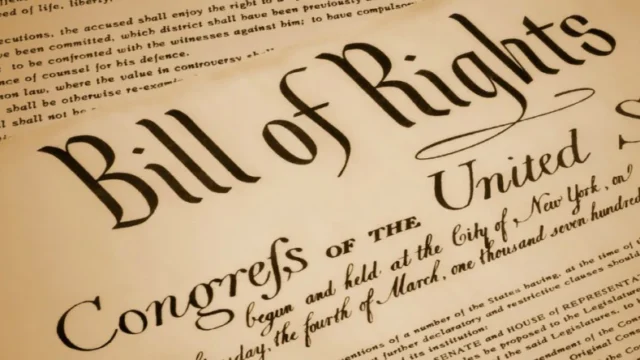 of life, liberty,
the accused shall enjoy the right to a
been committed, which district shall have been previously
to be confronted with the witnesses against him; to have compulsor
of counsel for his defence.
law, where the value in controversy
shall be otherwise
shall not be
Bill of Rights
Congreſs OF THE United S
begun and held at the City of New York, on
the fourth of March, one thousand seven hundred
of a number of the States having, at the time of
further declaratory and restrictive clauses should
its institution:
and HOUSE of REPRESENTA
be proposed to the Legislatures
said Legislatures, to
of the Con
Original Con